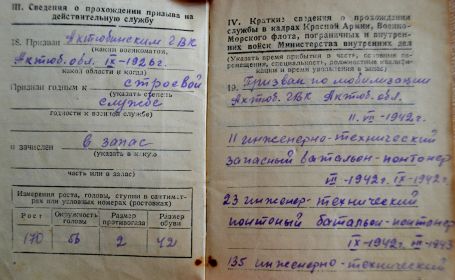 III. Сведения о прохождении призыва на
действительную службу
18. Призван Актюбинским ГВК
(каким военкоматом,
Актюб. обл. IX-1926г.
какой области и когда)
Признан годным к строевой
(указать степень
службе
годности к военной службе)
и зачислен в запас
(указать в какую
часть или в запас)
Измерения роста, головы, ступни в сантимет-
рах или условных номерах (ростовках)
Рост Окружность головы Размер противогаза Размер обуви
170 56 2 42
IV. Краткие сведения о прохождении
службы в кадрах Красной Армии, Военно-
Морского флота, пограничных и внутрен-
них войск Министерства внутренних дел
(Указать время прибытия в часть, основные пе-
ремещения, специальность, должностные квалифи-
кации и время увольнения в запас)
19. Призван по мобилизации
Актюб. ГВК Актюб. обл.
1942г.
11 инженерно-технический
запасный батальон-понтонер
-1942г. IX-1942г.
23 инженер-технический
понтоный батальон-понтонер
IX-1942г.
135 инженерно-технический